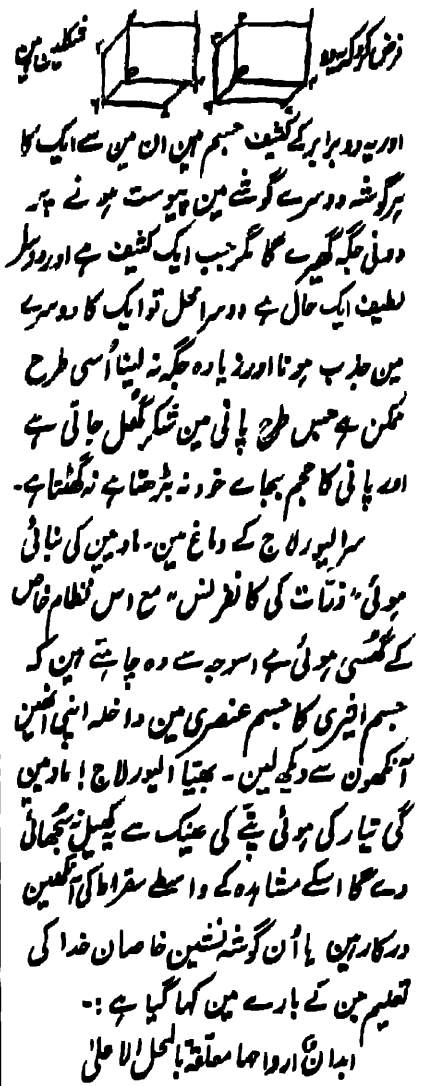 فرض کرو کہ یہ دو شکلیں ہیں
اور یہ دو برابر کے کثیف جسم ہین ان مین سے ایک کا
ہر گوشہ دوسرے گوشے مین پیوست ہونے پر
دونی جگہ گھیرے گا مگر جب ایک کثیف ہے اور دوسرا
لطیف ایک حال ہے دوسرا محل تو ایک کا دوسرے
مین جذب ہونا اور زیادہ جگہ نہ لینا اُسی طرح
ممکن ہے جس طرح پانی مین شکر گھل جاتی ہے
اور پانی کا حجم بجاے خود نہ بڑھتا ہے نہ گھٹتا ہے۔
سر الیور لاج کے دماغ مین۔ مادیین کی بنائی
ہوئی "ذرّات کی کانفرنس" مع اس نظام خاص
کے گھُسی ہوئی ہے اسوجہ سے وہ چاہتے ہین کہ
جسم اثیری کا جسم عنصری مین داخلہ اپنی انھین
آنکھون سے دیکھ لین۔ بھتیا الیور لاج! مادیین
کی تیار کی ہوئی پٹے کی عینک سے یہ کھیل نہ سُجھائی
دے گا اسکے مشاہدہ کے واسطے سقراط کی آنکھین
درکار ہین یا اُن گوشہ نشین خاصان خدا کی
تعلیم جن کے بارے مین کہا گیا ہے :۔
ابدانٌ ارواحہا معلّقۃ بالمحل الاعلیٰ